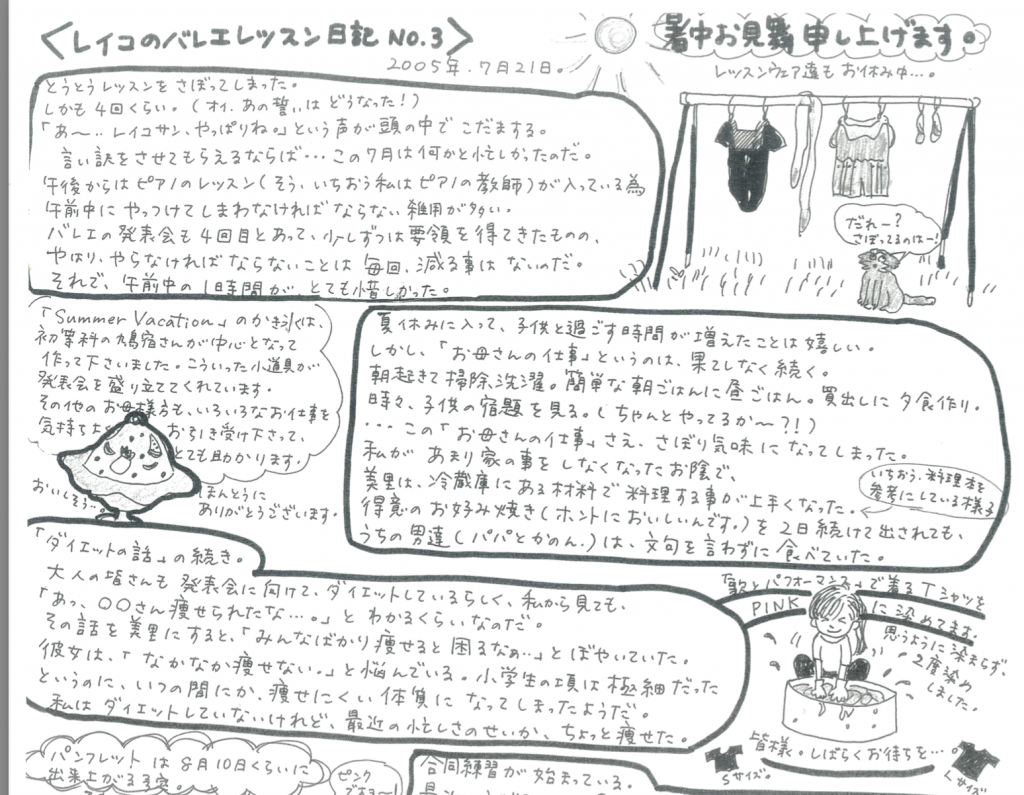 <レイコのバレエレッスン日記 NO.3>
2005年.7月21日。
暑中お見舞申し上げます。
レッスンウェア達も お休み中…。
とうとうレッスンをさぼってしまった。
しかも4回くらい。(オイ、あの誓いは どうなった!)
「あ〜‥ レイコサン、やっぱりね。」という声が頭の中で こだまする。
言い訳をさせてもらえるならば…この7月は何かと忙しかったのだ。
午後からは ピアノのレッスン(そう、いちおう私はピアノの教師)が入っている為
午前中に やっつけてしまわなければならない 雑用が多い。
バレエの発表会も4回目とあって、少しずつは要領を得てきたものの、
やはり、やらなければならないことは 毎回、減る事は ないのだ。
それで、午前中の 1時間が とても惜しかった。
だれー?
さぼってるのはー!
「Summer Vacation」のかき氷は、
初等科の鳩宿さんが中心となって
作って下さいました。こういった小道具が
発表会を盛り立ててくれています。
その他のお母様方も、いろいろなお仕事を
気持ち
お引き受け下さって、
とても助かります。
おいしそう‥
ほんとうに
ありがとうございます。
夏休みに入って、子供と過ごす時間が増えたことは嬉しい。
しかし、「お母さんの仕事」というのは、果てしなく続く。
朝起きて掃除、洗濯。簡単な朝ごはんに昼ごはん。買出しに夕食作り。
時々、子供の宿題を見る。(ちゃんとやってるか〜?!)
…この「お母さんの仕事」さえ、さぼり気味になってしまった。
私が あまり家の事をしなくなったお陰で、
美里は、冷蔵庫にある材料で料理する事が上手くなった。
いちおう、料理本を
参考にしている様子
得意のお好み焼き(ホントにおいしいんです。)を2日続けて出されても、
うちの男達(パパとかのん.)は、文句を言わずに食べていた。
「ダイエットの話」の続き。
大人の皆さんも発表会に向けて、ダイエットしているらしく、私から見ても、
「あっ、〇〇さん痩せられたな…。」とわかるくらいなのだ。
その話を美里にすると、「みんなばかり痩せると困るなぁ‥」とぼやいていた。
彼女は、「なかなか痩せない。」と悩んでいる。小学生の頃は極細だった
というのに、いつの間にか、痩せにくい体質になってしまったようだ。
私はダイエットしていないけれど、最近の忙しさのせいか、ちょっと痩せた。
「歌とパフォーマンス」で着るTシャツを
PINK に染めてます。
思うように染まらず、
2度染め
しました。
皆様。しばらくお待ちを…。
Sサイズ。
Lサイズ
パンフレットは8月10日くらいに
出来上がる予定。
ピンク
合同練習が始まっている。